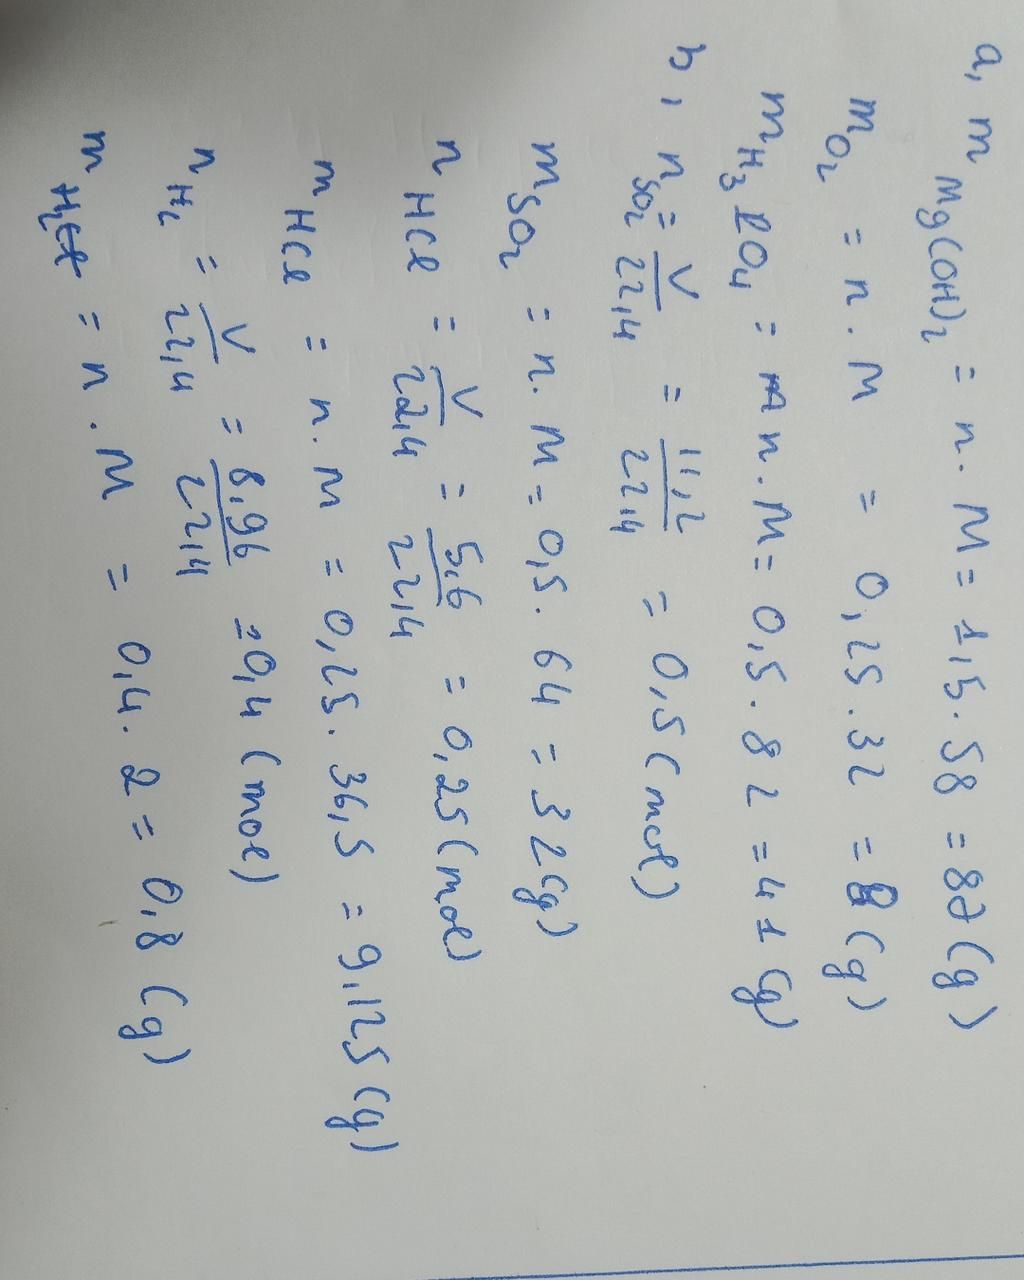 a, m Mg(OH)2 = n. M = 1,5. 58 = 87 (g)
m O2 = n. M = 0,25. 32 = 8 (g)
m H3PO4 = n. M = 0,5. 82 = 41 (g)
b, n SO2 = V/22,4 = 11,2/22,4 = 0,5 (mol)
m SO2 = n. M = 0,5. 64 = 32 (g)
n HCl = V/22,4 = 5,6/22,4 = 0,25 (mol)
m HCl = n. M = 0,25. 36,5 = 9,125 (g)
n H2 = V/22,4 = 8,96/22,4 = 0,4 (mol)
m H2 = n. M = 0,4. 2 = 0,8 (g)